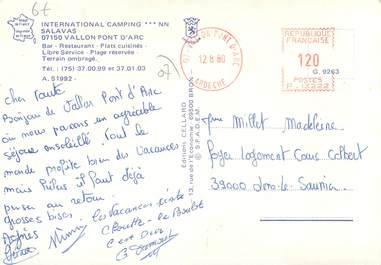 6€
INTERNATIONAL CAMPING *** NN
SALAVAS
07150 VALLON PONT D'ARC
Bar - Restaurant - Plats cuisinés -
Libre Service - Plage réservée -
Terrain ombragé.
Tél. : (75) 37.00.99 et 37.01.03
A. S1992 -
07
cher tante
Bonjour de Vallon Pont d'Arc
où nous passons un agréable
séjour ensoleillé. Tout le
monde profite bien des vacances
mais hélas il faut déjà
penser au retour.
grosses bises.
Agnès
les vacances
c'est
Editions CELLARD
13, rue de l'Economie - 69500 BRON
© S.P.A.D.E.M.
VALLON PONT D'ARC
12 8 80
ARDECHE
REPUBLIQUE
FRANÇAISE
120
G. 9263
POSTES
Millet Madeleine
Foyer logement Cours Colbert
39000 Lons-le-Saunier